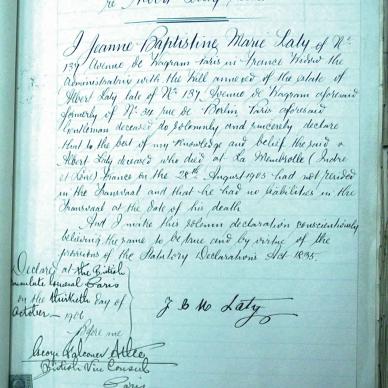 re Albert Laty
I Jeanne Baptistine Marie Laty of No
137 Avenue de Wagram Paris in France Widow the
Administratrix with the Will annexed of the estate of
Albert Laty late of No 137 Avenue de Wagram aforesaid
formerly of No 34 rue de Berlin Paris aforesaid
Gentleman deceased do solemnly and sincerely declare
that to the best of my knowledge and belief the said
Albert Laty deceased who died at La Membrolle (Indre
et Loire) France on the 28th August 1905 had not resided
in the Transvaal and that he had no liabilities in the
Transvaal at the date of his death
And I make this solemn declaration conscientiously
believing the same to be true and by virtue of the
provisions of the Statutory Declarations Act 1835.
Declared at the British
Consulate General Paris
on the thirtieth day of
October 1906
Before me
J B M Laty
George Falconer Atlee
British Vice Consul
Paris